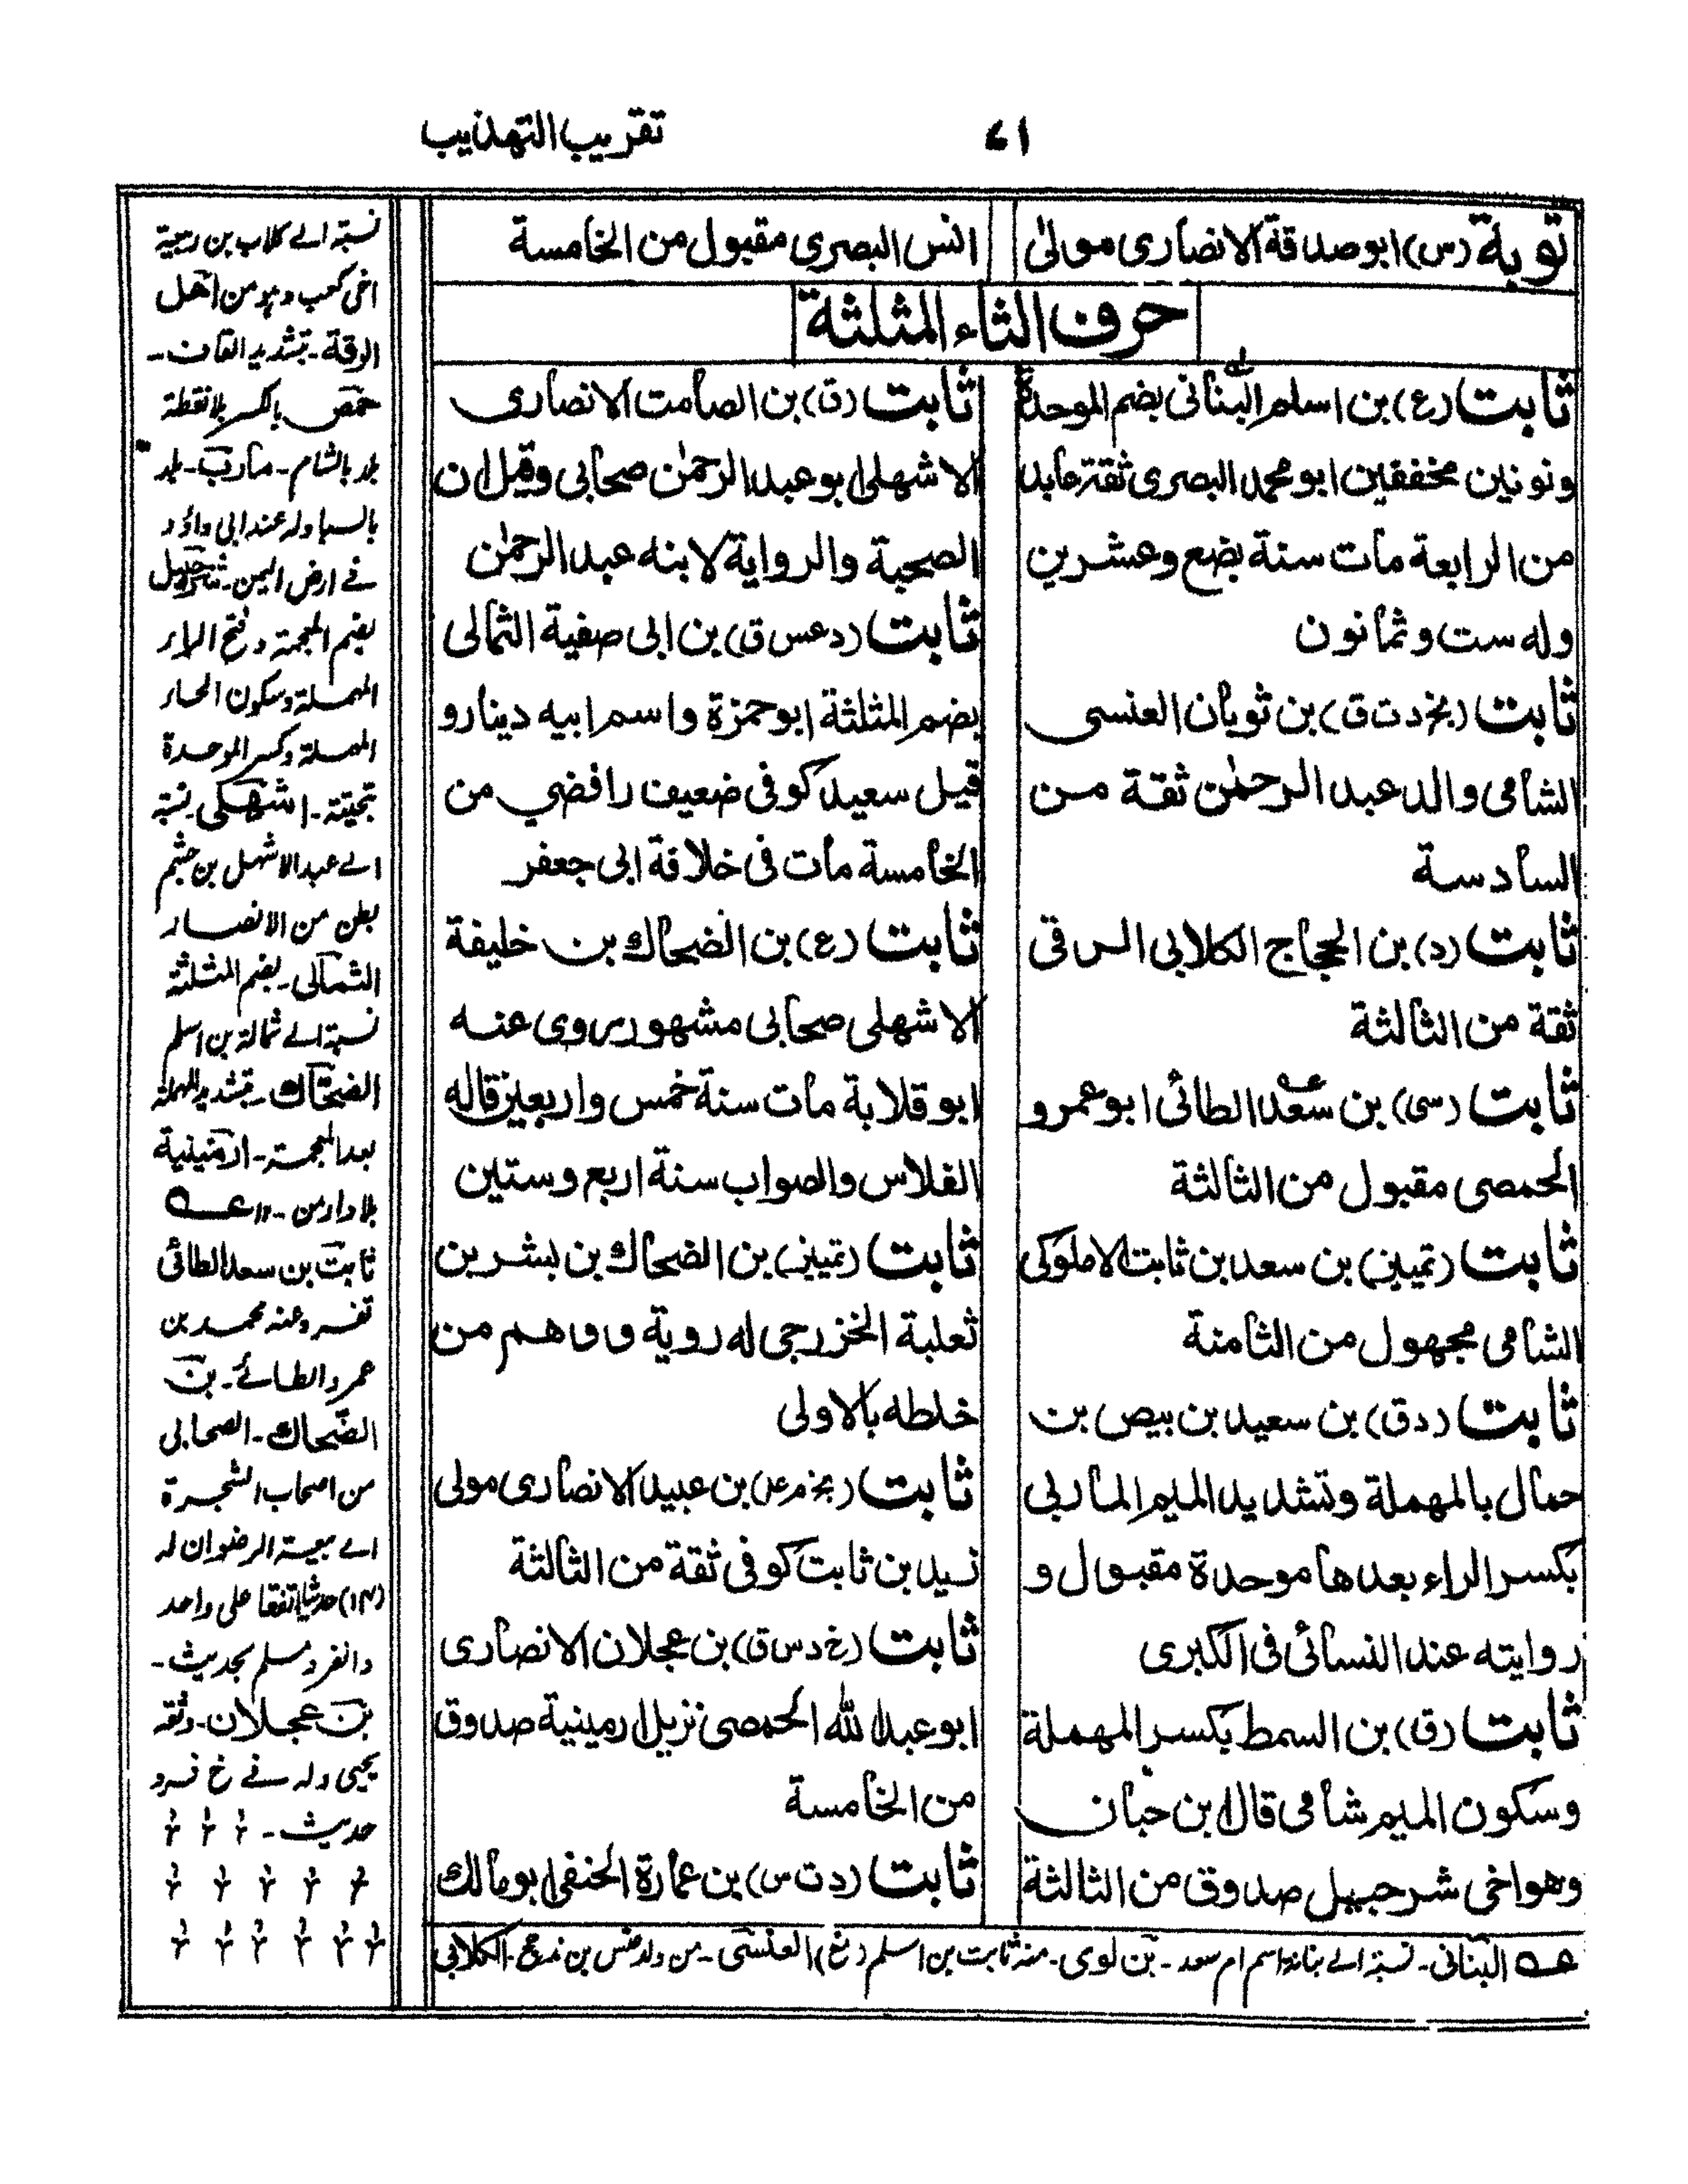 تقريب التهذيب
٧١
توبة (س) ابو صدقة الانصارى مولى
انس البصرى مقبول من الخامسة
حرف الثاء المثلثة
ثابت (ع) بن اسلم البنانى بضم الموحدة
ونونين مخففين ابو محمد البصرى ثقة عابد
من الرابعة مات سنة بضع وعشرين
وله ست وثمانون
ثابت (بخ د ت ق) بن ثوبان العنسى
الشامى والد عبد الرحمٰن ثقة من
السادسة
ثابت (د) بن الحجاج الكلابى الرقى
ثقة من الثالثة
ثابت (سى) بن سعد الطائى ابو عمرو
الحمصى مقبول من الثالثة
ثابت (تمييز) بن سعد بن ثابت الاملوكى
الشامى مجهول من الثامنة
ثابت (د ق) بن سعيد بن بيض بن
حمال بالمهملة وتشديد الميم الماربى
بكسر الراء بعدها موحدة مقبول و
روايته عند النسائى فى الكبرى
ثابت (ق) بن السمط بكسر المهملة
وسكون الميم شامى قال ابن حبان
وهو اخى شرحبيل صدوق من الثالثة
ثابت (ق) بن الصامت الانصارى
الاشهلى ابو عبد الرحمٰن صحابى وقيل ان
الصحبة والرواية لابنه عبد الرحمٰن
ثابت (د عس ق) بن ابى صفية الثمالى
بضم المثلثة ابو حمزة واسم ابيه دينار و
قيل سعيد كوفى ضعيف رافضي من
الخامسة مات فى خلافة ابى جعفر
ثابت (ع) بن الضحاك بن خليفة
الاشهلى صحابى مشهور روى عنه
ابو قلابة مات سنة خمس واربعين قاله
الفلاس والصواب سنة اربع وستين
ثابت (تمييز) بن الضحاك بن بشر بن
ثعلبة الخزرجى له روية ووهم من
خلطه بالاولى
ثابت (بخ م عد) بن عبيد الانصارى مولى
زيد بن ثابت كوفى ثقة من الثالثة
ثابت (خ د س ق) بن عجلان الانصارى
ابو عبد الله الحمصى نزيل ارمينية صدوق
من الخامسة
ثابت (د ت س) بن عمارة الحنفى ابو مالك
عه البنانى۔ نسبة الے بنانة اسم ام سعد۔ بن لوى۔ منه ثابت بن اسلم (مغ) العنسى۔ من ولد عنس بن مذحج۔ الكلابى
نسبة الے كلاب بن ربيعة
اخى كعب وهو من اهل
الرقة۔ بتشديد القاف۔
حمص بالكسر بلا نقطة
بلد بالشام۔ مارب۔ بلد
بالسبا وله عند ابى داؤد
فے ارض اليمن۔ شرحبيل
بضم المعجمة وفتح الراء
المهملة وسكون الحاء
المهملة وكسر الموحدة
تحتية۔ اشهلى نسبة
الے عبد الاشهل بن جشم
بطن من الانصار
الثمالى۔ بضم المثلثة
نسبة الے ثمالة بن اسلم
الضحاك۔ بتشديد المهملة
بعد المعجمة۔ ارمينية
بلاد ارمن۔ ١٢ عه
ثابت بن سعد الطائى
تفرد عنه محمد بن
عمرو الطائے۔ بن
الضحاك۔ الصحابى
من اصحاب الشجرة
اے بيعة الرضوان له
(١٤) حديثا اتفقا على واحد
وانفرد مسلم بحديث۔
بن عجلان۔ وثقه
يحيى وله فے خ فرد
حديث۔